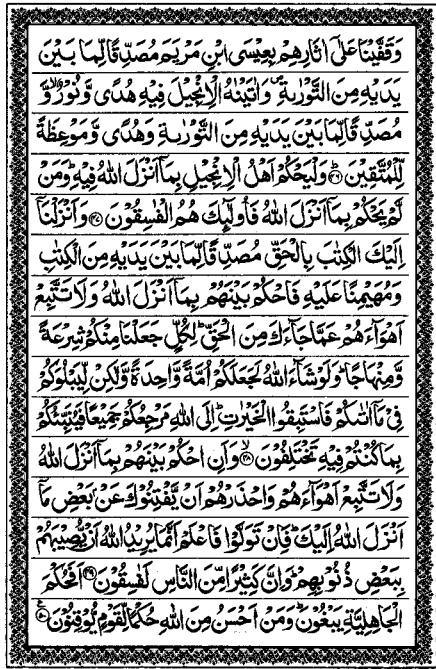 وَقَفَّيْنَا عَلٰٓى اٰثَارِهِمْ بِعِيْسَى ابْنِ مَرْيَمَ مُصَدِّقًا لِّمَا بَيْنَ
يَدَيْهِ مِنَ التَّوْرٰىةِ ۪ وَاٰتَيْنٰهُ الْاِنْجِيْلَ فِيْهِ هُدًى وَّنُوْرٌ ۙ وَّ
مُصَدِّقًا لِّمَا بَيْنَ يَدَيْهِ مِنَ التَّوْرٰىةِ وَهُدًى وَّمَوْعِظَةً
لِّلْمُتَّقِيْنَ ﴿۴۶﴾ وَلْيَحْكُمْ اَهْلُ الْاِنْجِيْلِ بِمَاۤ اَنْزَلَ اللّٰهُ فِيْهِ ؕ وَمَنْ
لَّمْ يَحْكُمْ بِمَاۤ اَنْزَلَ اللّٰهُ فَاُولٰٓئِكَ هُمُ الْفٰسِقُوْنَ ﴿۴۷﴾ وَاَنْزَلْنَاۤ
اِلَيْكَ الْكِتٰبَ بِالْحَقِّ مُصَدِّقًا لِّمَا بَيْنَ يَدَيْهِ مِنَ الْكِتٰبِ
وَمُهَيْمِنًا عَلَيْهِ فَاحْكُمْ بَيْنَهُمْ بِمَاۤ اَنْزَلَ اللّٰهُ وَلَا تَتَّبِعْ
اَهْوَآءَهُمْ عَمَّا جَآءَكَ مِنَ الْحَقِّ ؕ لِكُلٍّ جَعَلْنَا مِنْكُمْ شِرْعَةً
وَّمِنْهَاجًا ؕ وَلَوْ شَآءَ اللّٰهُ لَجَعَلَكُمْ اُمَّةً وَّاحِدَةً وَّلٰكِنْ لِّيَبْلُوَكُمْ
فِيْ مَاۤ اٰتٰىكُمْ فَاسْتَبِقُوا الْخَيْرٰتِ ؕ اِلَى اللّٰهِ مَرْجِعُكُمْ جَمِيْعًا فَيُنَبِّئُكُمْ
بِمَا كُنْتُمْ فِيْهِ تَخْتَلِفُوْنَ ﴿۴۸﴾ ۙ وَاَنِ احْكُمْ بَيْنَهُمْ بِمَاۤ اَنْزَلَ اللّٰهُ
وَلَا تَتَّبِعْ اَهْوَآءَهُمْ وَاحْذَرْهُمْ اَنْ يَّفْتِنُوْكَ عَنْۢ بَعْضِ مَاۤ
اَنْزَلَ اللّٰهُ اِلَيْكَ ؕ فَاِنْ تَوَلَّوْا فَاعْلَمْ اَنَّمَا يُرِيْدُ اللّٰهُ اَنْ يُّصِيْبَهُمْ
بِبَعْضِ ذُنُوْبِهِمْ ؕ وَاِنَّ كَثِيْرًا مِّنَ النَّاسِ لَفٰسِقُوْنَ ﴿۴۹﴾ اَفَحُكْمَ
الْجَاهِلِيَّةِ يَبْغُوْنَ ؕ وَمَنْ اَحْسَنُ مِنَ اللّٰهِ حُكْمًا لِّقَوْمٍ يُّوْقِنُوْنَ ﴿۵۰﴾ ع